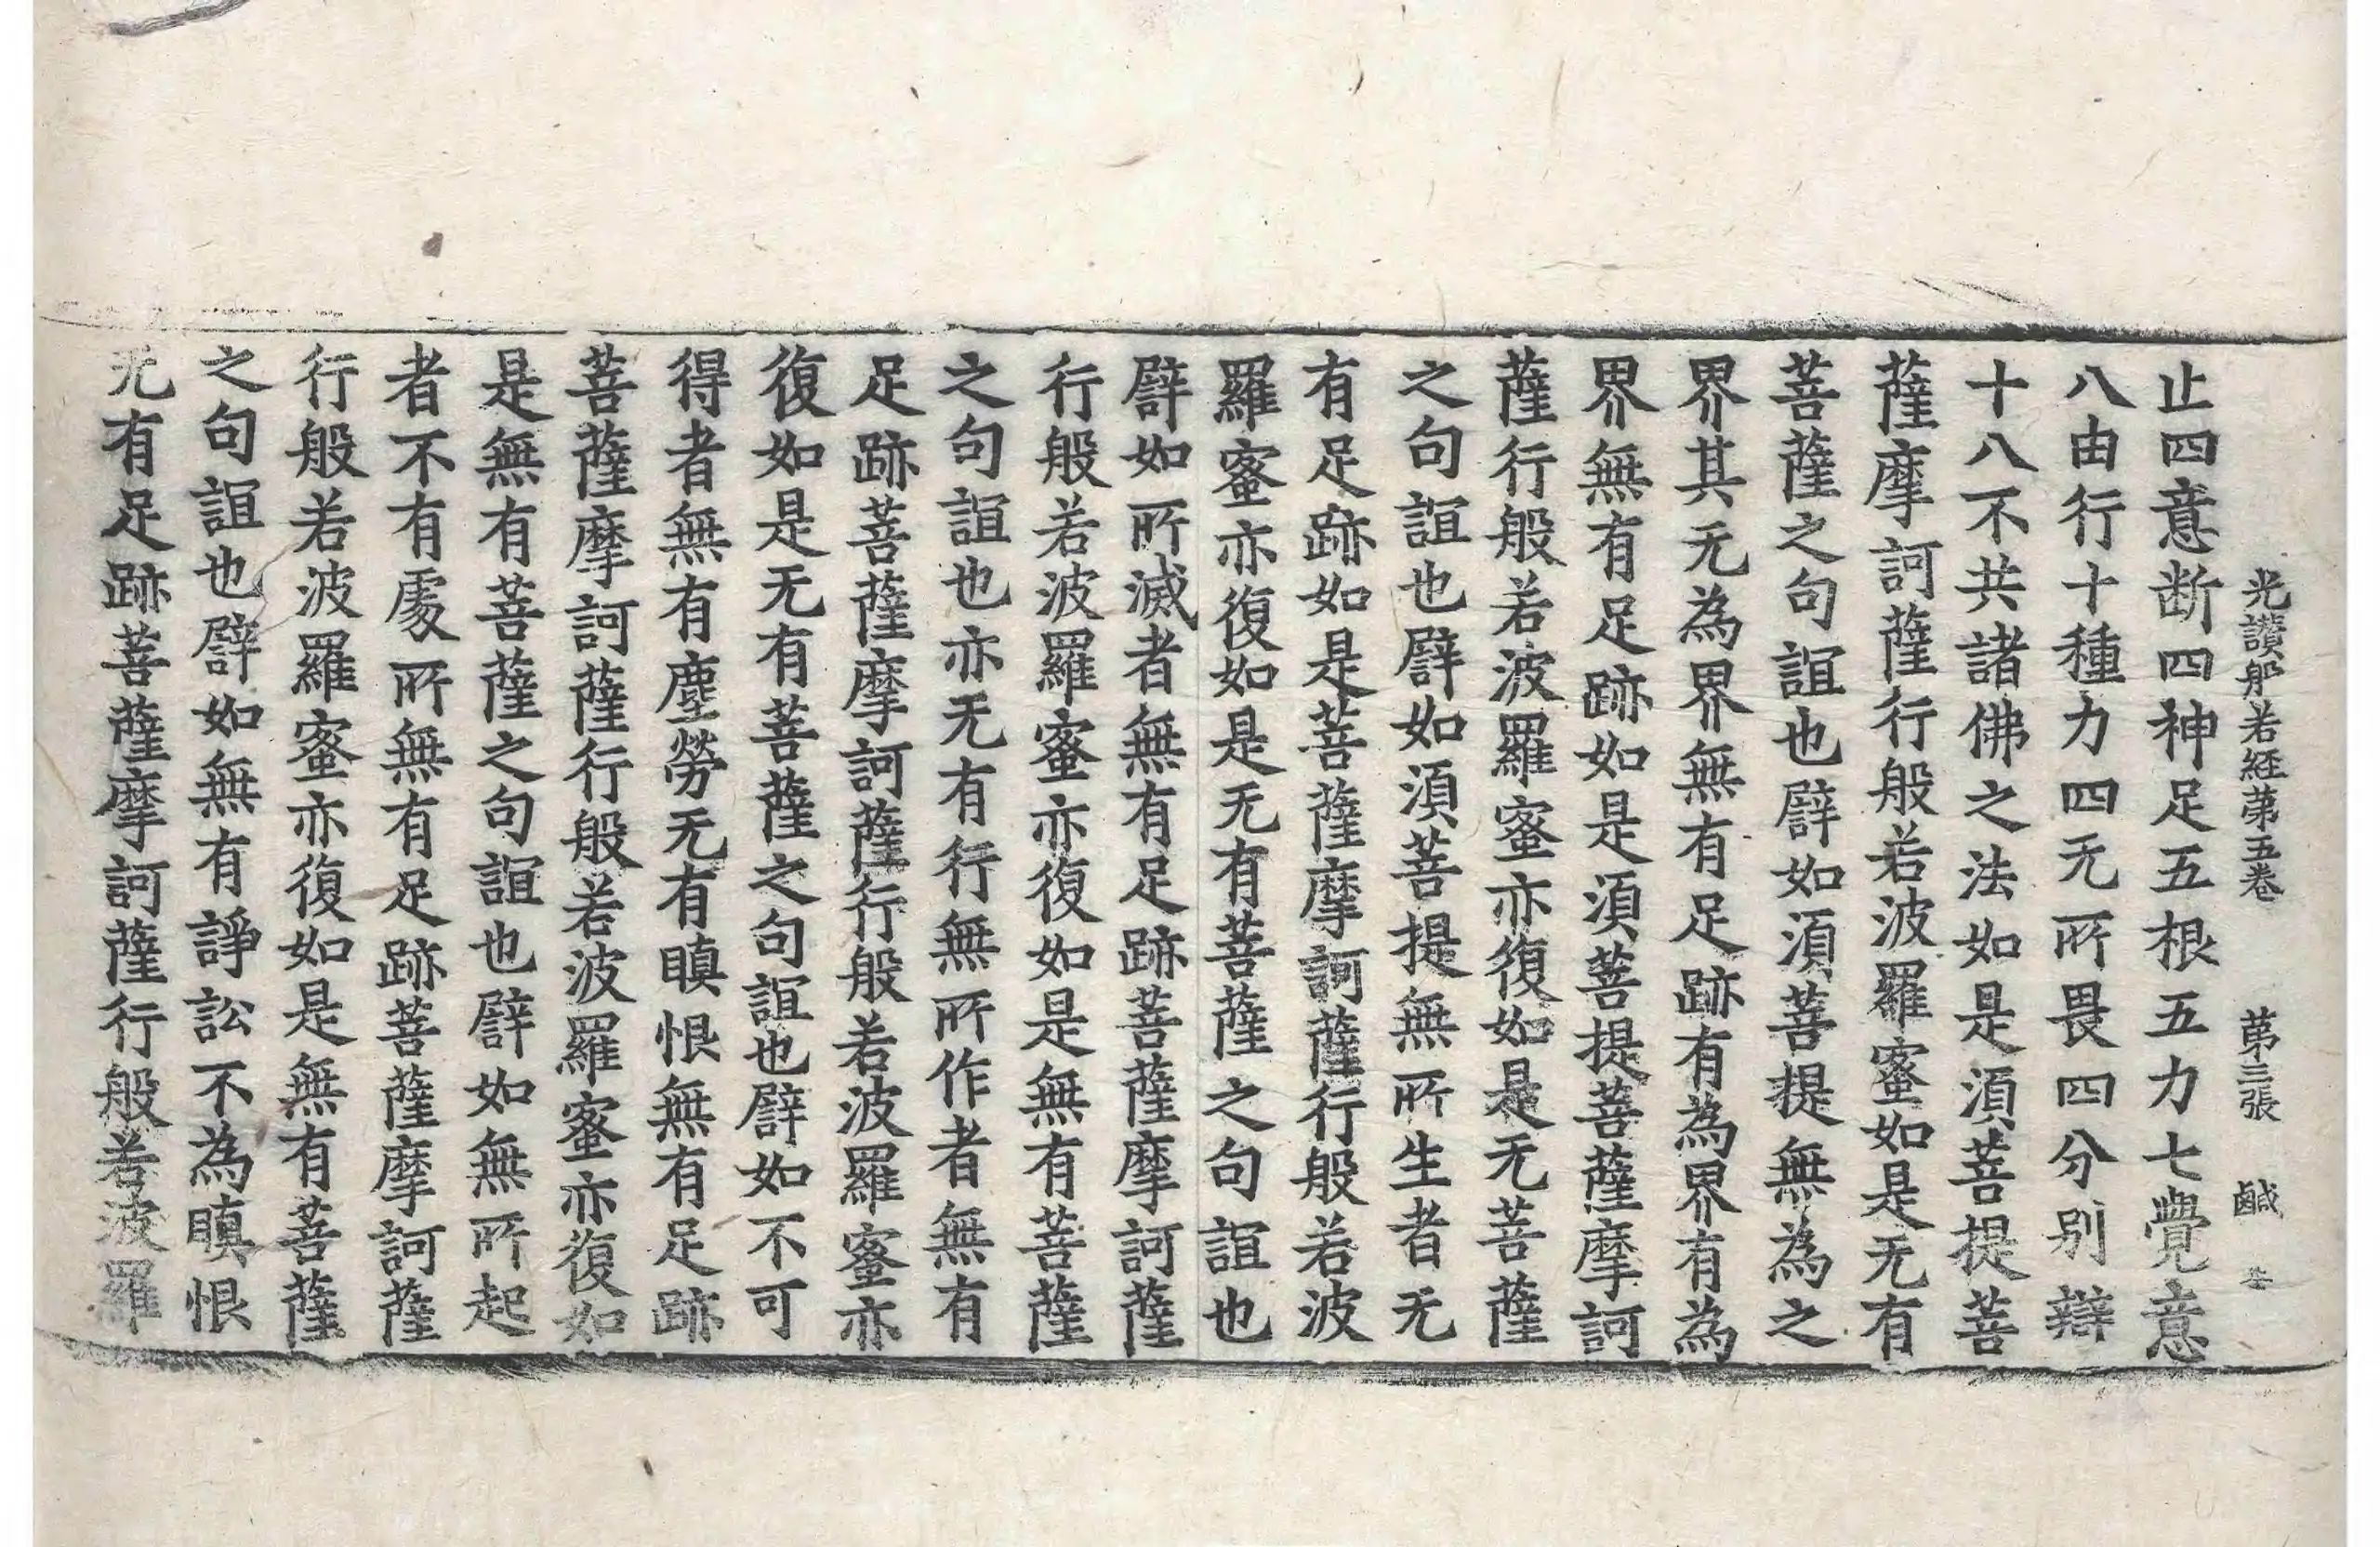 光讃般若經第五卷　第三張　鹹
止四意断四神足五根五力七覺意
八由行十種力四无所畏四分别辯
十八不共諸佛之法如是湏菩提菩
薩摩訶薩行般若波羅蜜如是无有
菩薩之句誼也譬如湏菩提無為之
界其无為界無有足跡有為界有為
界無有足跡如是湏菩提菩薩摩訶
薩行般若波羅蜜亦復如是无菩薩
之句誼也譬如湏菩提無所生者无
有足跡如是菩薩摩訶薩行般若波
羅蜜亦復如是无有菩薩之句誼也
譬如所滅者無有足跡菩薩摩訶薩
行般若波羅蜜亦復如是無有菩薩
之句誼也亦无有行無所作者無有
足跡菩薩摩訶薩行般若波羅蜜亦
復如是无有菩薩之句誼也譬如不可
得者無有塵勞无有瞋恨無有足跡
菩薩摩訶薩行般若波羅蜜亦復如
是無有菩薩之句誼也譬如無所起
者不有處所無有足跡菩薩摩訶薩
行般若波羅蜜亦復如是無有菩薩
之句誼也譬如無有諍訟不為瞋恨
无有足跡菩薩摩訶薩行般若波羅